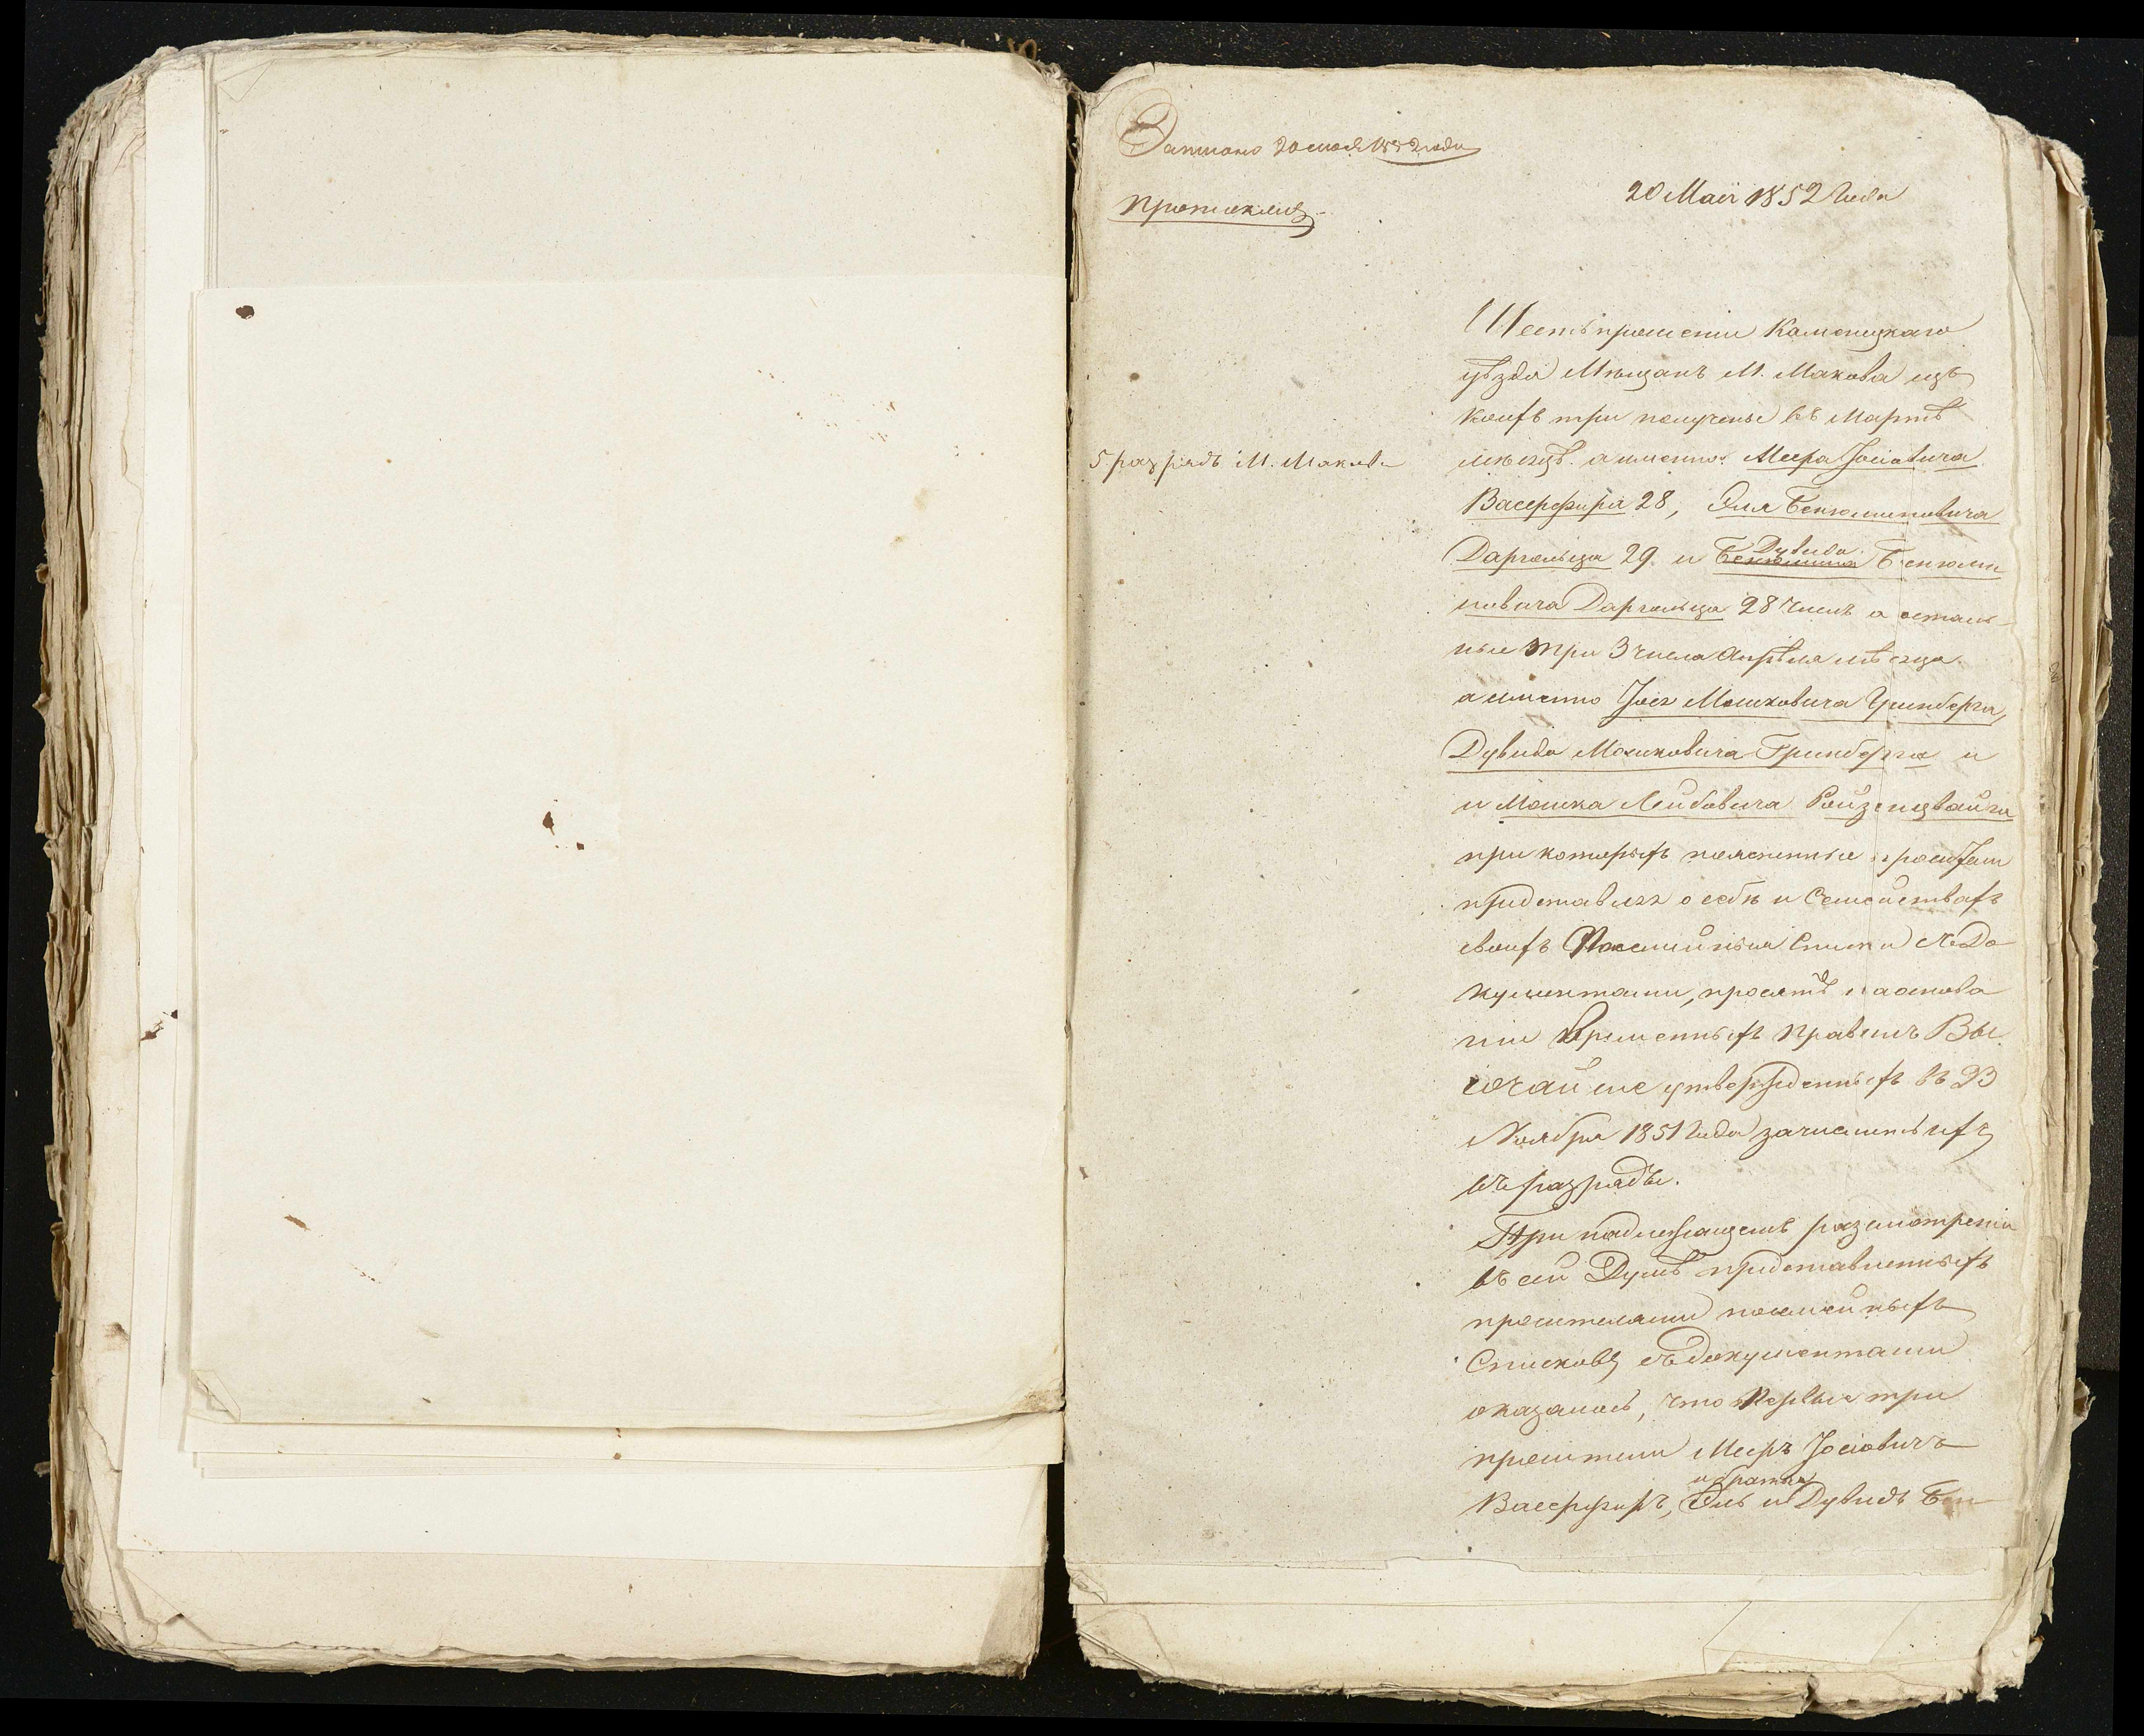 Записано 20 мая 1852 года
Протоколъ
20 Маія 1852 Года
Шесть прошеніи Каменецкаго
уѣзда Мѣщанъ М. Макова изъ
коихъ три полученые въ Мартѣ
5 разрядъ М. Макова
мѣсяцѣ. а именно: Меера Іосіовича
Васерфира 28, Эля Бенюминовича
Даргольца 29. и Бенюмина Дувида Бенюми
новича Даргольца 28 Числъ а осталь-
ные три 3 числа Апрѣля мѣсяца.
а именно Іося Мошковича Гринберга,
Дувида Мошковича Гринберга и
и Мошка Лейбовича Ройзенцвайга
при которыхъ поясненные просители
представляя о себѣ и Семействахъ
своихъ Посемѣйныя Списки съ До
кументами, просятъ на основа
ніи временныхъ правилъ Вы
сочайше утвержденныхъ въ 23
Ноября 1851 Года зачислить ихъ
въ разряды.
При надлежащемъ разсмотреніи
въ сей Думѣ представленныхъ
просителями посемейныхъ
Списковъ съ документами
оказалось, что Первые три
просители Мееръ Іосіовичъ
и братья
Васерфиръ, Эль и Дувидъ Бен-